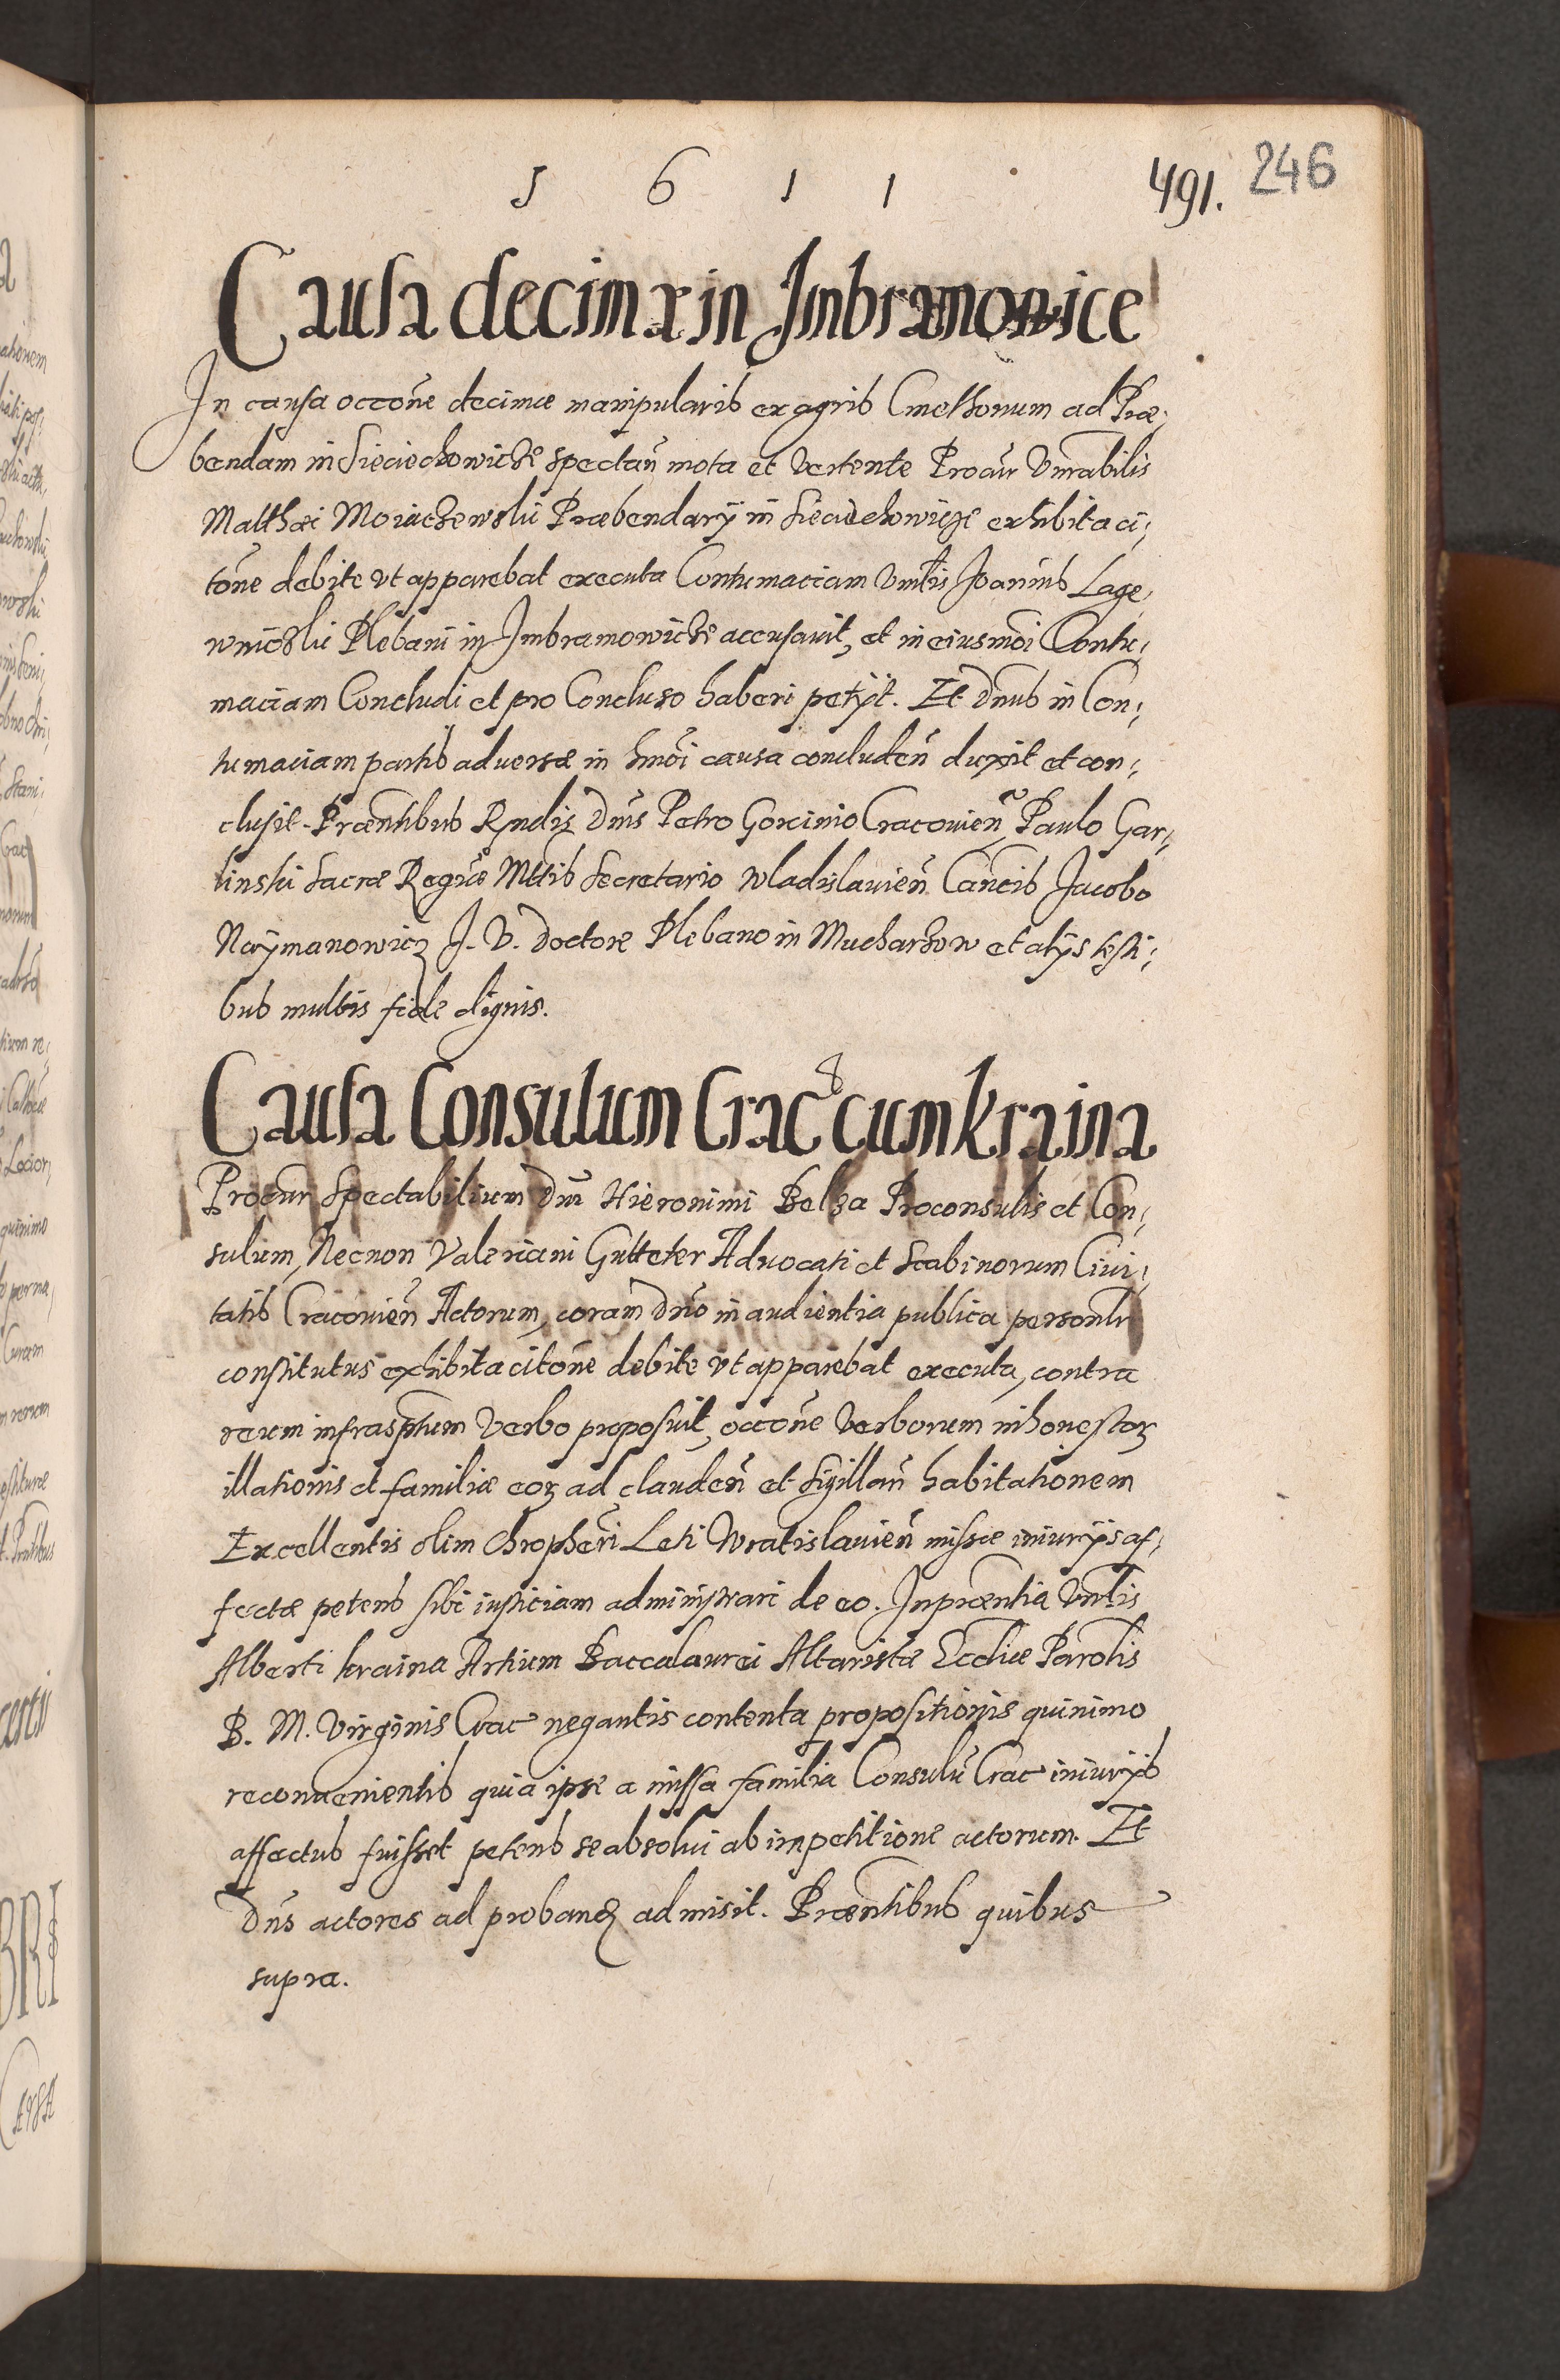 1 6 1 1
491. 246
Causa decimæ in Imbramowice
In causa occõne decimæ manipularis ex agris Cmethonum ad Præ;
bendam in Sieciechowicze spectañ mota et vertente Procur Vnrabilis
Matthæi Moiaczewski Præbendarÿ in Sieciechowicze exhibita ci;
tõne debite vt apparebat executa Contumaciam Vnrlis Joannis Lage;
wniczki Plebani in Imbramowicze accusavit, et in eiusmõi Contu;
maciam Concludi et pro Concluso haberi petÿt. Et Dnus in Con;
tumaciam partis adversæ in hmõi causa concludeñ duxit et con;
clusit. Præntibus Rndis Dnis Petro Gorcinio Cracovieñ, Paulo Gar;
linski Sacræ Regiæ Mttis Secretario Wladislavieñ Cañcis Jacobo
Naÿmanowicz J. V. Doctore Plebano in Mucharzow et alÿs testi;
bus multis fide dignis.
Causa Consulum Crac cum Kraina
Procur Spectabilium Dnı Hieronimi Belza Proconsulis et Con;
sulum, Necnon Valeriani Gutteter Advocati et Scabinorum Civi;
tatis Cracovieñ Actorum, coram Dno in audientia publica personlr
constitutus exhibita citõne debite vt apparebat executa, contra
reum infrasptum Verbo proposuit, occõne Verborum inhonestoꝝ
illationis et familiæ eoꝝ ad claudeñ et sigillañ habitationem
Excellentis olim Chropheri Leti Wratislavieñ missæ iniurÿs af;
fectæ petens sibi iusticiam administrari de eo. In præntia Vnrlis
Alberti Kraina Artium Baccalaurei Altaristæ Ecclæ Parolis
B. M. Virginis Crac negantis contenta propositionis quinimo
reconvenientis quia ipse a missa familia Consulũ Crac iniurÿs
affectus fuisset petens se absolvi ab impetitione actorum. Et
Dñs actores ad proband admisit. Præntibus quibus
supra.